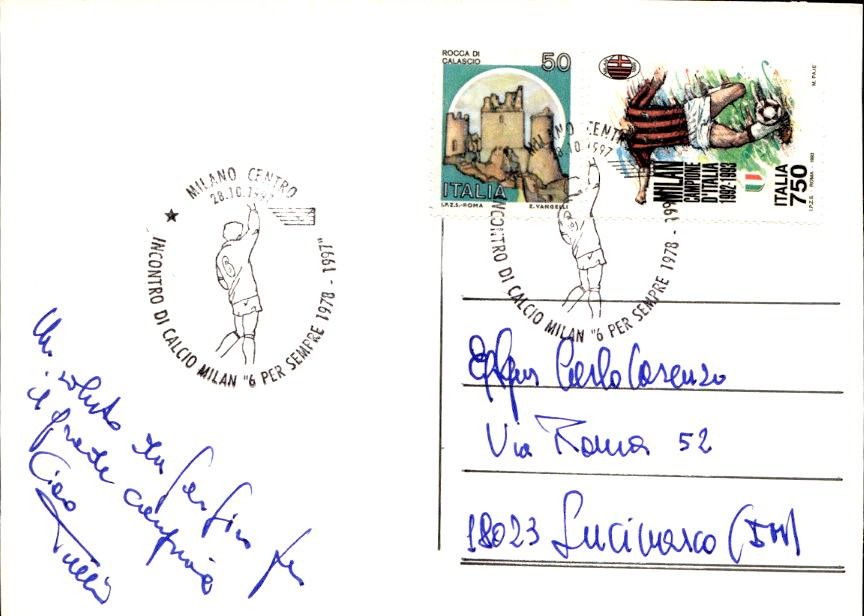 ROCCA DI
CALASCIO
50
ITALIA
I.P.Z.S.-ROMA E. VANGELLI
M. PAJE
MILAN
CAMPIONE
D'ITALIA
1992·1993
ITALIA
750
I.P.Z.S. ROMA - 1993
MILANO CENTRO
28.10.1997
INCONTRO DI CALCIO MILAN "6 PER SEMPRE 1978 - 1997"
MILANO CENTRO
28.10.1997
INCONTRO DI CALCIO MILAN "6 PER SEMPRE 1978 - 199
Un saluto
il grande campione
Ciao
Carlo Lorenzo
Via Roma 52
18023 (IM)